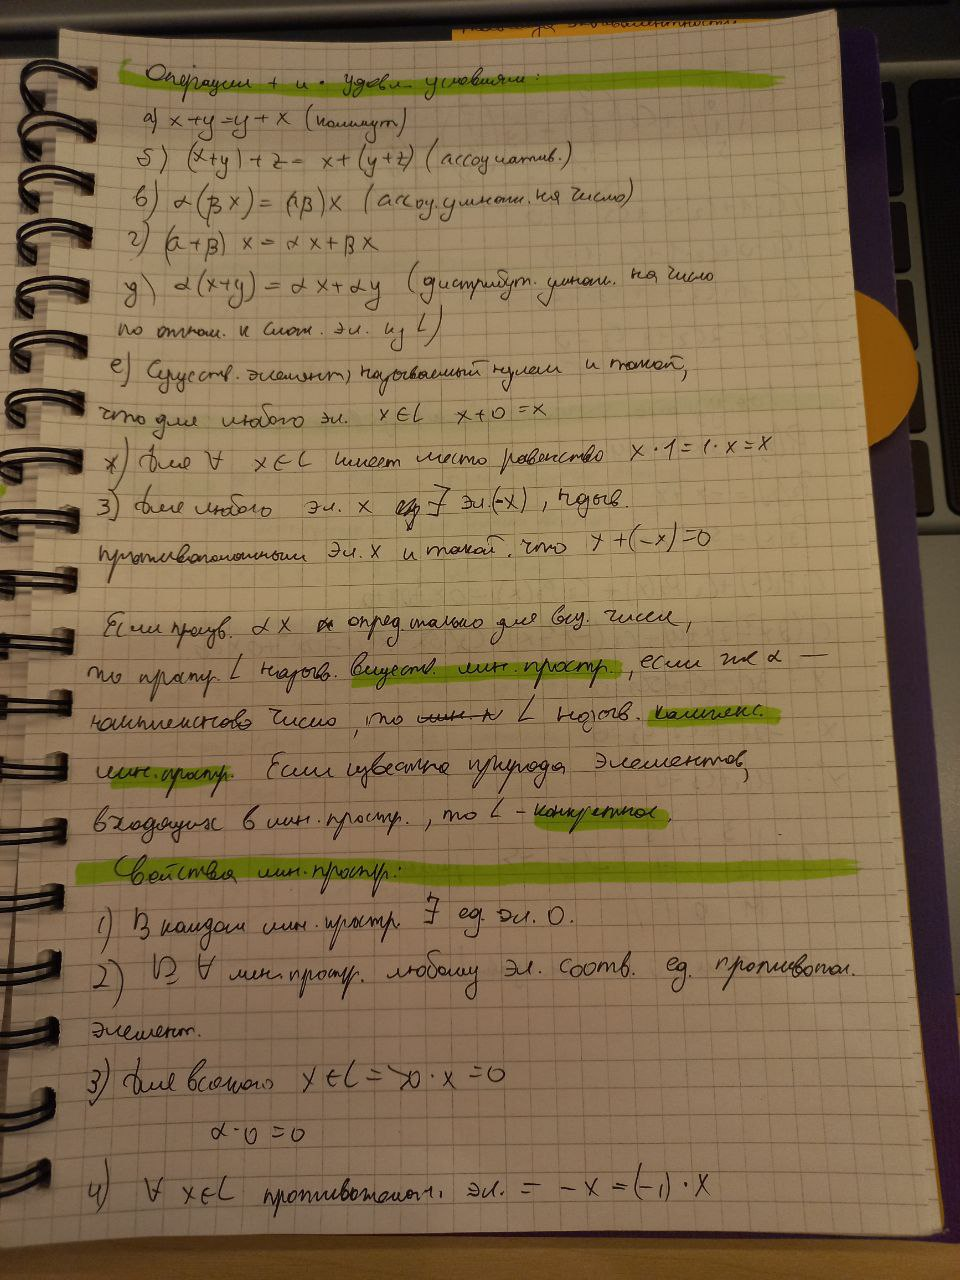 Операции + и · удовл. условиям:
а) x+y=y+x (коммут)
б) (x+y)+z = x+(y+z) (ассоциатив.)
в) α(βx) = (αβ)x (ассоц. умнож. на число)
г) (α+β) x = αx+βx
д) α(x+y) = αx+αy (дистрибут. умнож. на число
по отнош. к слож. эл. из L)
е) Существ. элемент, называемый нулем и такой,
что для любого эл. x∈L x+0=x
ж) Для ∀ x∈L имеет место равенство x·1=1·x=x
з) Для любого эл. x ∃ эл.(-x), назыв.
противоположным эл. x и такой, что x+(-x)=0
Если произв. αx опред. только для вещ. чисел,
то простр. L назыв. веществ. лин. простр., если же α —
комплексного число, то L назыв. комплекс.
лин. простр. Если известна природа элементов,
входящих в лин. простр., то L - конкретное.
Свойства лин. простр.:
1) В каждом лин. простр. ∃ ед. эл. 0.
2) В ∀ лин. простр. любому эл. соотв. ед. противопол.
элемент.
3) Для всякого x∈L => 0·x=0
α·0=0
4) ∀ x∈L противополож. эл. = -x = (-1)·x